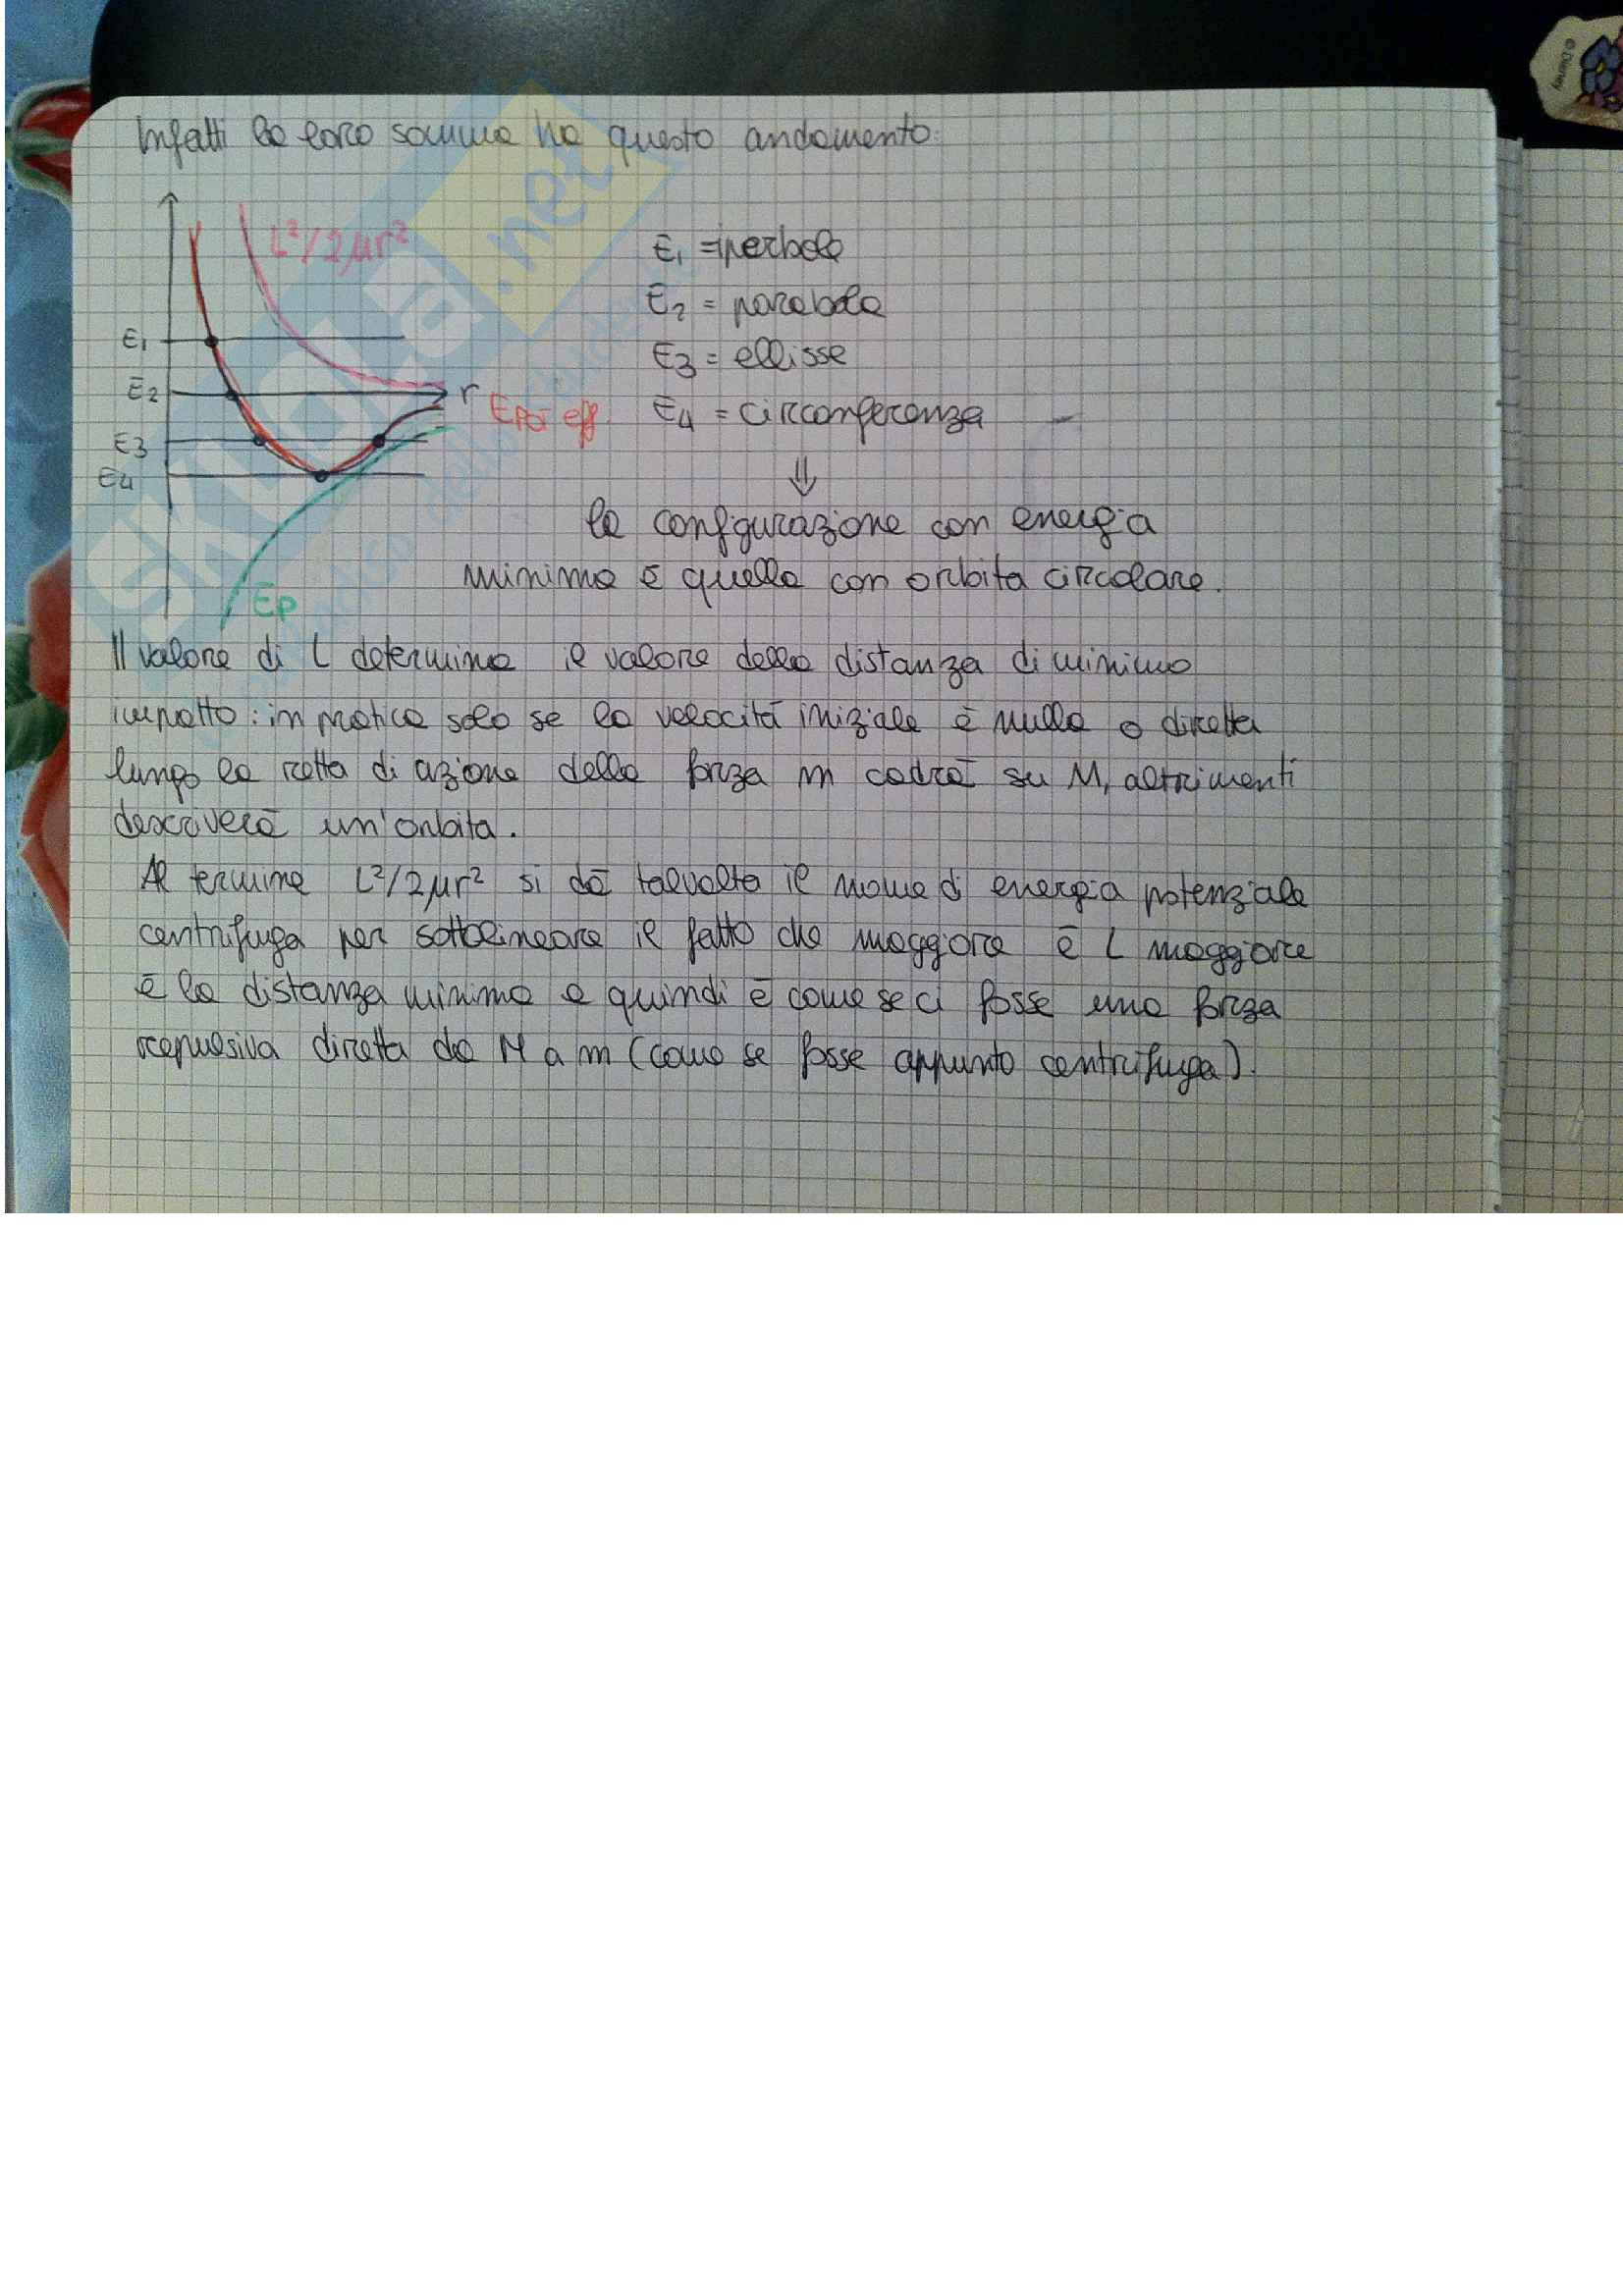 Infatti la loro somma ha questo andamento:
L²/2μr²
E₁ = iperbole
E₂ = parabola
E₃ = ellisse
E₄ = circonferenza
E₁
E₂
r
E₃
E₄
Epot eff
Ep
⇓
la configurazione con energia
minima è quella con orbita circolare.
Il valore di L determina il valore della distanza di minimo
impatto: in pratica solo se la velocità iniziale è nulla o diretta
lungo la retta di azione della forza m cadrà su M, altrimenti
descriverà un'orbita.
Al termine L²/2μr² si dà talvolta il nome di energia potenziale
centrifuga per sottolineare il fatto che maggiore è L maggiore
è la distanza minima e quindi è come se ci fosse una forza
repulsiva diretta da M a m (come se fosse appunto centrifuga).
SKUOLA.net
© Disney